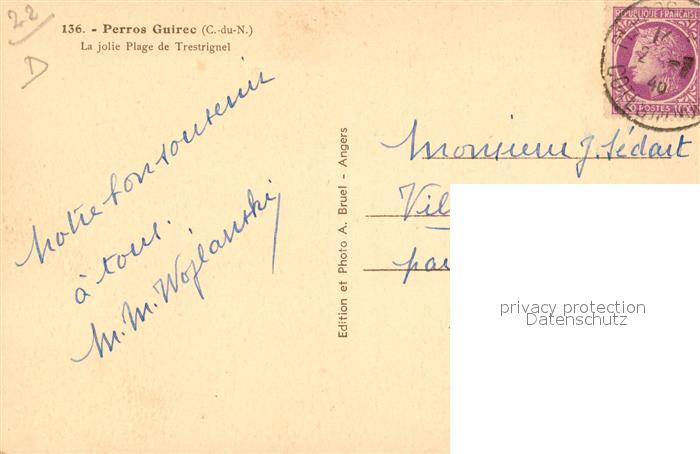 22
D
136. - Perros Guirec (C.-du-N.)
La jolie Plage de Trestrignel
RÉPUBLIQUE FRANÇAISE
POSTES
Notre bon souvenir
à tous.
M. M. Wojlanski
Edition et Photo A. Bruel - Angers
Monsieur J. Sédart
Vil
par
privacy protection
Datenschutz